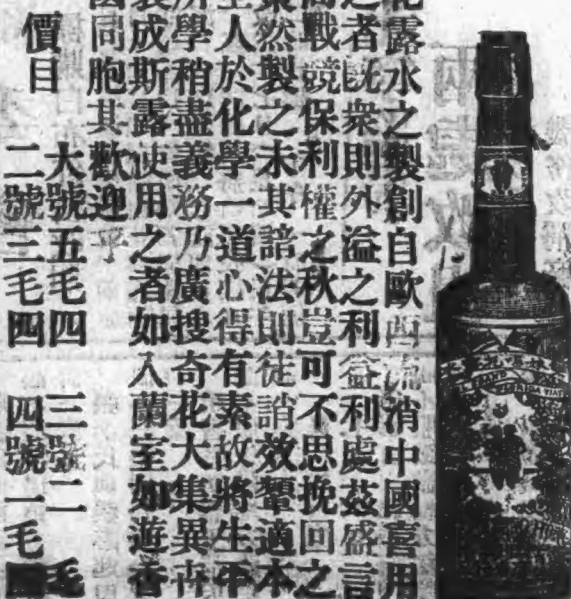 花露水之製創自歐西流消中國喜用
之者既衆則外溢之利益利處茲盛言
商戰競保利權之秋豈可不思挽回之
策然製之未其諳法則徒誚效顰適本
主人於化學一道心得有素故將生平
所學稍盡義務乃廣搜奇花大集異卉
製成斯露使用之者如入蘭室如遊香
國同胞其歡迎乎
價目
大號五毛四
三號二毛
二號三毛四
四號一毛